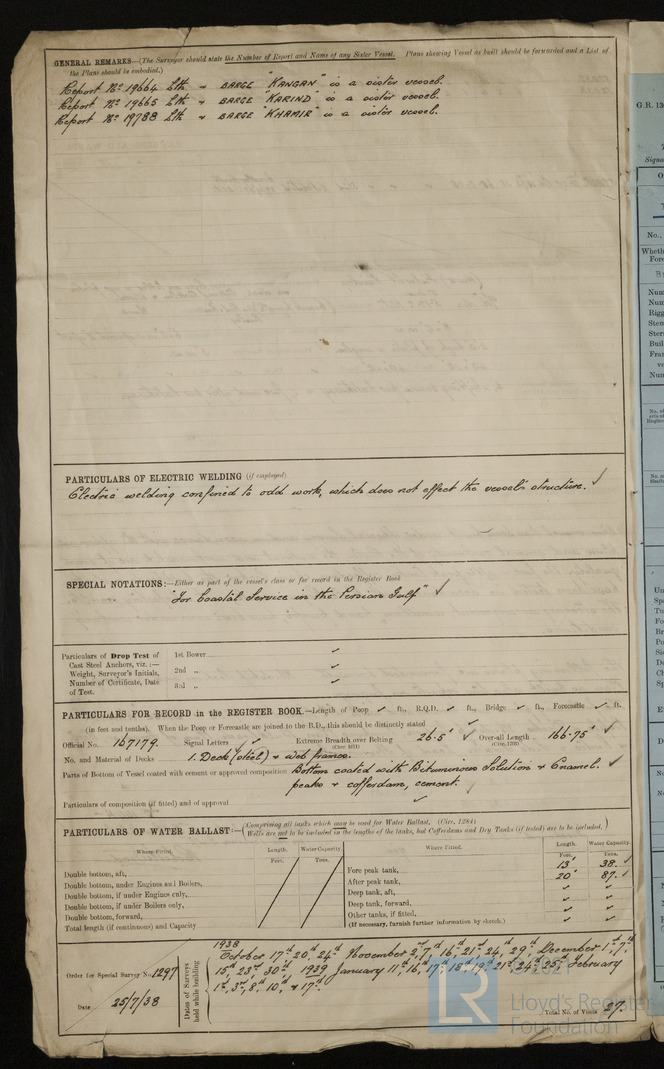 GENERAL REMARKS—(The Surveyor should state the Number of Report and Name of any Sister Vessel. Plans shewing Vessel as built should be forwarded and a List of
the Plans should be embodied.)
Report No 19664 Lth & BARGE "KANGAN" is a sister vessel.
Report No 19665 Lth & BARGE "KARIND" is a sister vessel.
Report No 19788 Lth & BARGE "KHAMIR" is a sister vessel.
PARTICULARS OF ELECTRIC WELDING (if employed)
Electric welding confined to odd work, which does not effect the vessel's structure. ✓
SPECIAL NOTATIONS:—Either as part of the vessel's class or for record in the Register Book
"For Coastal Service in the Persian Gulf" ✓
Particulars of Drop Test of
Cast Steel Anchors, viz.:—
Weight, Surveyor's Initials,
Number of Certificate, Date
of Test.
1st Bower ✓
2nd „ ✓
3rd „ ✓
PARTICULARS FOR RECORD in the REGISTER BOOK.—Length of Poop ✓ ft., R.Q.D. ✓ ft., Bridge ✓ ft., Forecastle ✓ ft.
(in feet and tenths). When the Poop or Forecastle are joined to the B.D., this should be distinctly stated ✓
Official No. 167179. Signal Letters ✓ Extreme Breadth over Belting 26.5' ✓ Over-all Length 166.75' ✓
(Circ. 1611) (Circ. 1703)
No. and Material of Decks 1. Deck (steel) & web frames.
Parts of Bottom of Vessel coated with cement or approved composition Bottom coated with Bituminous Solution & Enamel. ✓
peaks & cofferdam, cement. ✓
Particulars of composition (if fitted) and of approval ✓
PARTICULARS OF WATER BALLAST:—(Comprising all tanks which may be used for Water Ballast, (Circ. 1284)
Wells are not to be included in the lengths of the tanks, but Cofferdams and Dry Tanks (if tested) are to be included.)
Where Fitted. Length. Water Capacity. Where Fitted. Length. Water Capacity.
Feet. Tons. Feet. Tons.
Double bottom, aft,
Double bottom, under Engines and Boilers,
Double bottom, if under Engines only,
Double bottom, if under Boilers only,
Double bottom, forward,
Total length (if continuous) and Capacity
Fore peak tank, 13' 38. ✓
After peak tank, 20' 87. ✓
Deep tank, aft, ✓ ✓
Deep tank, forward, ✓ ✓
Other tanks, if fitted, ✓ ✓
(If necessary, furnish further information by sketch.)
Order for Special Survey No. 1297
Date 25/7/38
Dates of Surveys
held while building
1938
October 17th 20, 24th November 2nd, 7th, 16th, 21st, 24, 29th, December 1st, 7th
15th, 23rd 30th, 1939 January 11th, 16th, 17th, 18th, 19th 21st, 24th, 25th, February
1st, 3rd, 8th, 10th & 17th.
Total No. of Visits 27.
LR
© 2021
Lloyd's Register
Foundation
G.R. 13
No.,
Wheth
Fore
Num
Num
Rigg
Stem
Stern
Buil
Fran
ve
Num